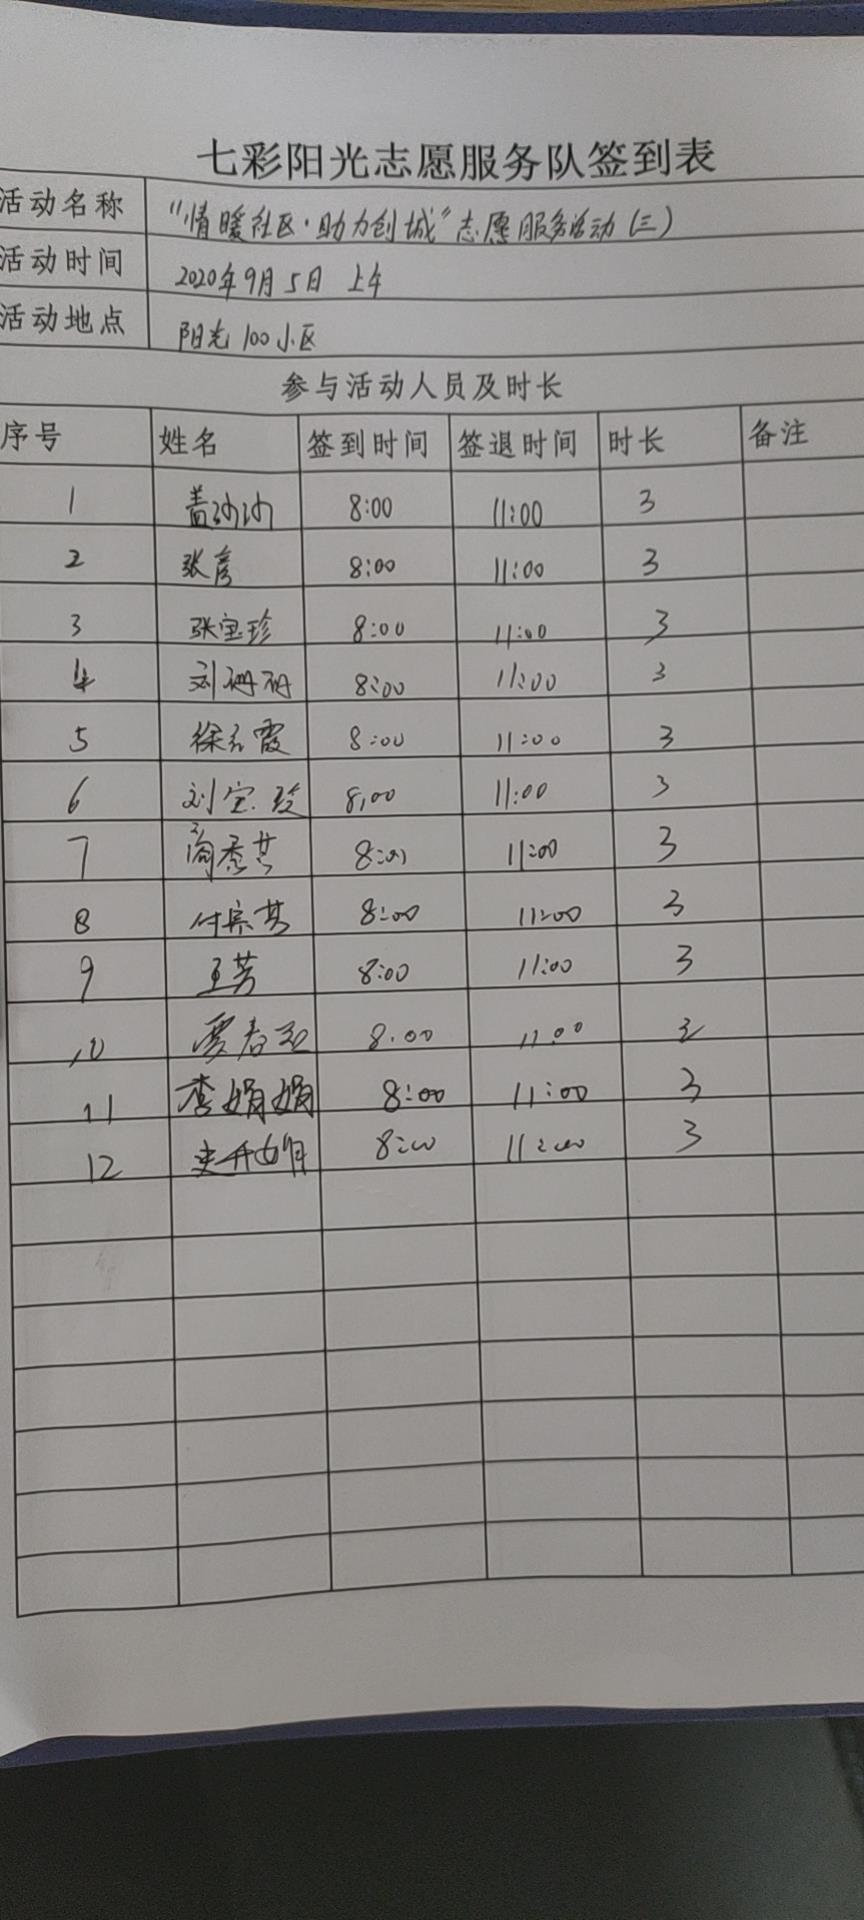 七彩阳光志愿服务队签到表
活动名称 “情暖社区·助力创城”志愿服务活动(三)
活动时间 2020年9月5日 上午
活动地点 阳光100小区
参与活动人员及时长
序号 姓名 签到时间 签退时间 时长 备注
1 盖沙沙 8:00 11:00 3
2 张彦 8:00 11:00 3
3 张宝珍 8:00 11:00 3
4 刘珊珊 8:00 11:00 3
5 徐红霞 8:00 11:00 3
6 刘宝玲 8:00 11:00 3
7 8:00 11:00 3
8 付宗芬 8:00 11:00 3
9 王芳 8:00 11:00 3
10 贾春 8:00 11:00 3
11 李娟娟 8:00 11:00 3
12 史开娟 8:00 11:00 3